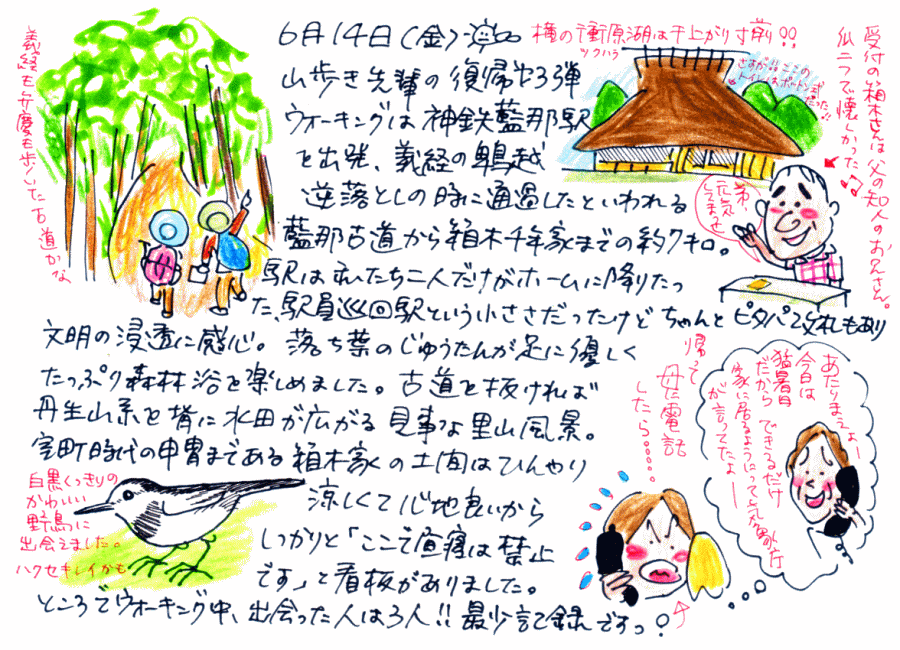 6月14日(金)
山歩き先輩の復帰第3弾
ウォーキングは神鉄藍那駅
を出発、義経の鵯越
逆落としの時に通過したといわれる
藍那古道から箱木千年家までの約7キロ。
駅は私たち二人だけがホームに降りたっ
た、駅員巡回駅という小ささだったけど ちゃんとピタパ改札もあり
文明の浸透に感心。落ち葉のじゅうたんが足に優しく
たっぷり森林浴を楽しめました。古道を抜ければ
丹生山系を背に水田が広がる見事な里山風景。
室町時代の甲冑まである箱木家の土間はひんやり
涼しくて心地良いから
しっかりと「ここで昼寝は禁止
です」と看板がありました。
ところでウォーキング中、出会った人は3人!! 最少記録ですっ。
義経も弁慶も歩いた古道かな
横の衝原湖は干上がり寸前!!
ツクハラ
さすが!!ここの
トイレはボットン式
だった!!
受付の箱木さんは父の知人のお兄さん。
似ラで懐しかった
弟、
元気
してまっせ
白黒くっきりの
かわいい
野鳥に
出会えました。
ハクセキレイかも
帰って
母に電話
したら……
あたりまえょー
今日は
猛暑日
だから できるだけ
家に居るようにって気象庁
が言ってたよー